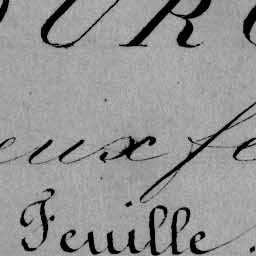 OUR
eux fe
Feuille.